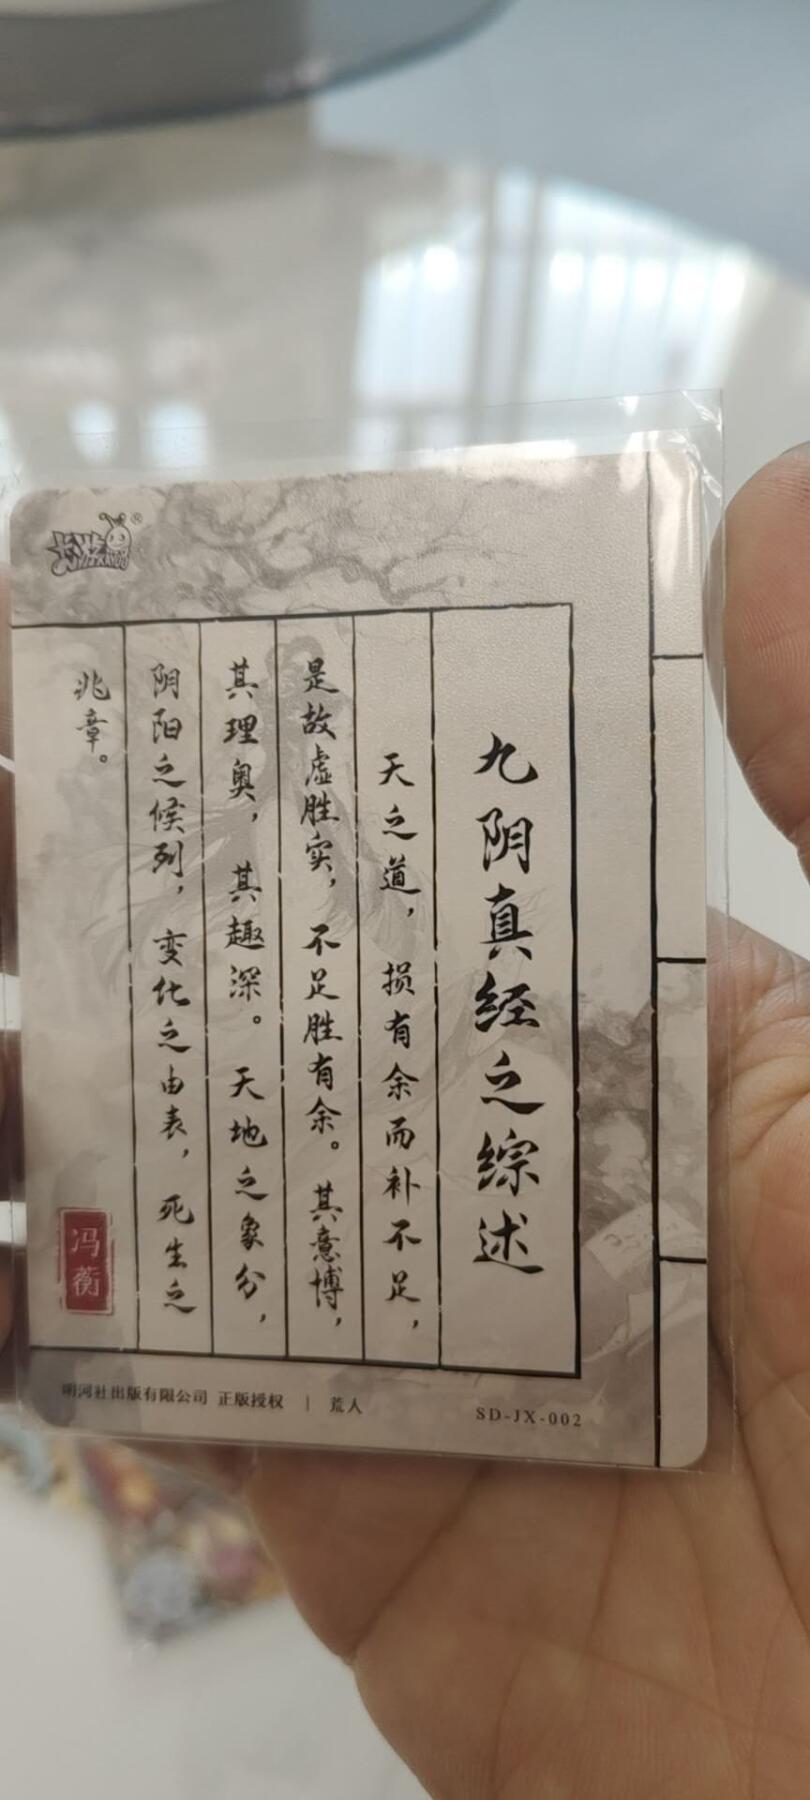 卡游
KAYOU
®
九阴真经之综述
天之道，损有余而补不足，
是故虚胜实，不足胜有余。其意博，
其理奥，其趣深。天地之象分，
阴阳之候列，变化之由表，死生之
兆章。
冯蘅
明河社出版有限公司 正版授权 | 荒人
SD-JX-002